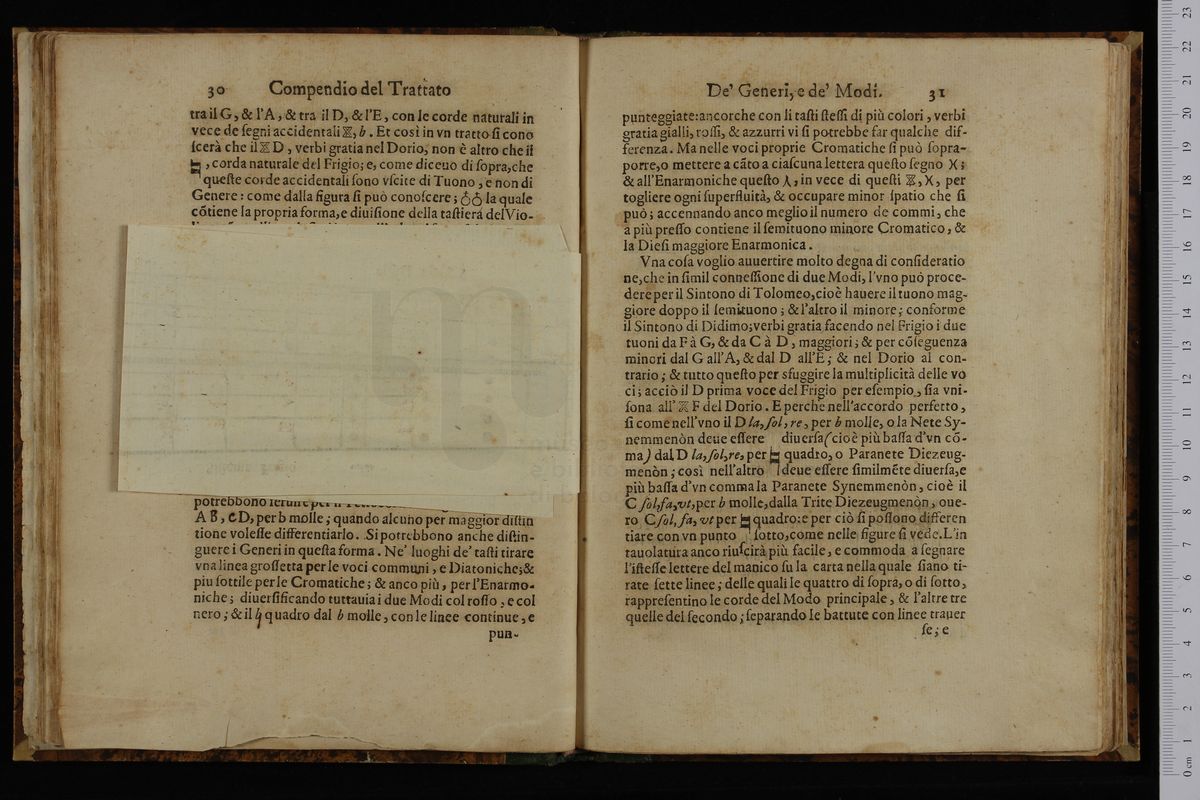 30 Compendio del Trattato
tra il G, & l'A, & tra il D, & l'E, con le corde naturali in
vece de segni accidentali X, b. Et così in vn tratto si cono
scerà che il X D, verbi gratia nel Dorio, non è altro che il
♮, corda naturale del Frigio; e, come diceuo di sopra, che
queste corde accidentali sono vscite di Tuono, e non di
Genere: come dalla figura si può conoscere; la quale
cōtiene la propria forma, e diuisione della tastiera del Vio-
potrebbono seruire per il
A B, C D, per b molle; quando alcuno per maggior distin
tione volesse differentiarlo. Si potrebbono anche distin-
guere i Generi in questa forma. Ne' luoghi de' tasti tirare
vna linea grossetta per le voci communi, e Diatoniche; &
piu sottile per le Cromatiche; & anco più, per l'Enarmo-
niche; diuersificando tuttauia i due Modi col rosso, e col
nero; & il ♮ quadro dal b molle, con le linee continue, e
pun-
De' Generi, e de' Modi. 31
punteggiate: ancorche con li tasti stessi di più colori, verbi
gratia gialli, rossi, & azzurri vi si potrebbe far qualche dif-
ferenza. Ma nelle voci proprie Cromatiche si può sopra-
porre, o mettere a cāto a ciascuna lettera questo segno X;
& all'Enarmoniche questo λ, in vece di questi X, X, per
togliere ogni superfluità, & occupare minor spatio che si
può; accennando anco meglio il numero de commi, che
a più presso contiene il semituono minore Cromatico, &
la Diesi maggiore Enarmonica.
Vna cosa voglio auuertire molto degna di consideratio
ne, che in simil connessione di due Modi, l'vno può proce-
dere per il Sintono di Tolomeo, cioè hauere il tuono mag-
giore doppo il semituono; & l'altro il minore; conforme
il Sintono di Didimo; verbi gratia facendo nel Frigio i due
tuoni da F à G, & da C à D, maggiori; & per cōseguenza
minori dal G all'A, & dal D all'E; & nel Dorio al con-
trario; & tutto questo per sfuggire la multiplicità delle vo
ci; acciò il D prima voce del Frigio per esempio, sia vni-
sona all' X F del Dorio. E perche nell'accordo perfetto,
si come nell'vno il D la, sol, re, per b molle, o la Nete Sy-
nemmenòn deue essere diuersa (cioè più bassa d'vn cō-
ma) dal D la, sol, re, per ♮ quadro, o Paranete Diezeug-
menòn; così nell'altro deue essere similmēte diuersa, e
più bassa d'vn comma la Paranete Synemmenòn, cioè il
C sol, fa, vt, per b molle, dalla Trite Diezeugmenòn, oue-
ro C sol, fa, vt per ♮ quadro: e per ciò si possono differen
tiare con vn punto sotto, come nelle figure si vede. L'in
tauolatura anco riuscirà più facile, e commoda a segnare
l'istesse lettere del manico su la carta nella quale siano ti-
rate sette linee; delle quali le quattro di sopra, o di sotto,
rappresentino le corde del Modo principale, & l'altre tre
quelle del secondo; separando le battute con linee trauer
se; e